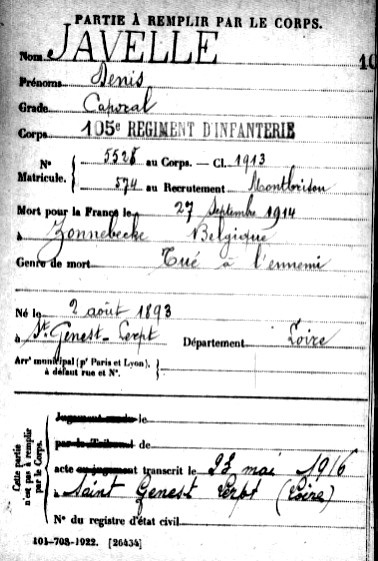 PARTIE À REMPLIR PAR LE CORPS.
Nom JAVELLE
Prénoms Denis
Grade Caporal
Corps 105e REGIMENT D'INFANTERIE
N° Matricule. { 5528 au Corps. — Cl. 1913
574 au Recrutement Montbrison
Mort pour la France le 27 Septembre 1914
à Zonnebecke Belgique
Genre de mort Tué à l'ennemi
Né le 2 août 1893
à St Genest-Lerpt Département Loire
Arrt municipal (pr Paris et Lyon), à défaut rue et N°. }
Cette partie n'est pas à remplir par le Corps.
le
de
acte transcrit le 23 mai 1916
à Saint Genest Lerpt (Loire)
N° du registre d'état civil
101-708-1922. [26434]